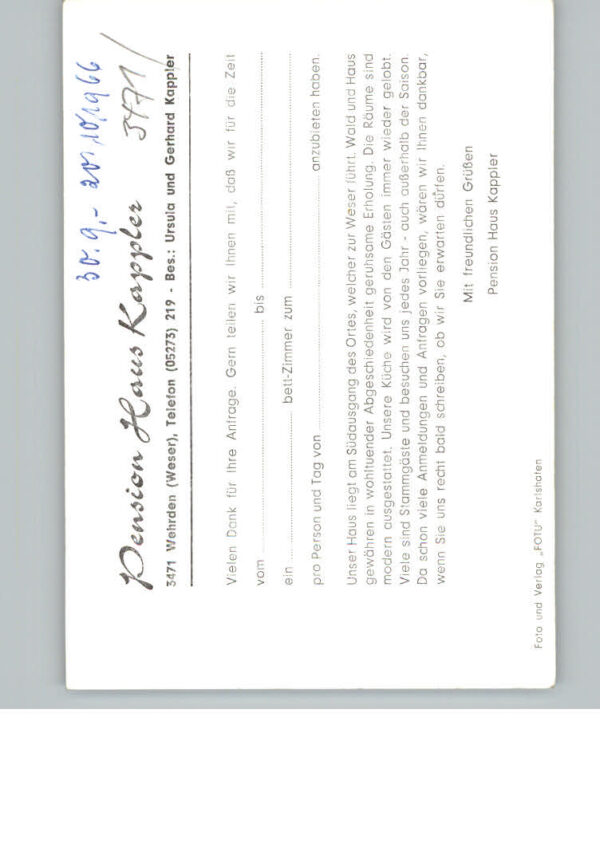 30.9.- 20.10.1966
3471/
Pension Haus Kappler
3471 Wehrden (Weser), Telefon (05273) 219 - Bes.: Ursula und Gerhard Kappler
Vielen Dank für Ihre Anfrage. Gern teilen wir Ihnen mit, daß wir für die Zeit
vom ........ bis ........
ein ........ bett-Zimmer zum ........
pro Person und Tag von ........ anzubieten haben.
Unser Haus liegt am Südausgang des Ortes, welcher zur Weser führt. Wald und Haus
gewähren in wohltuender Abgeschiedenheit geruhsame Erholung. Die Räume sind
modern ausgestattet. Unsere Küche wird von den Gästen immer wieder gelobt.
Viele sind Stammgäste und besuchen uns jedes Jahr - auch außerhalb der Saison.
Da schon viele Anmeldungen und Anfragen vorliegen, wären wir Ihnen dankbar,
wenn Sie uns recht bald schreiben, ob wir Sie erwarten dürfen.
Mit freundlichen Grüßen
Pension Haus Kappler
Foto und Verlag „FOTU" Karlshafen